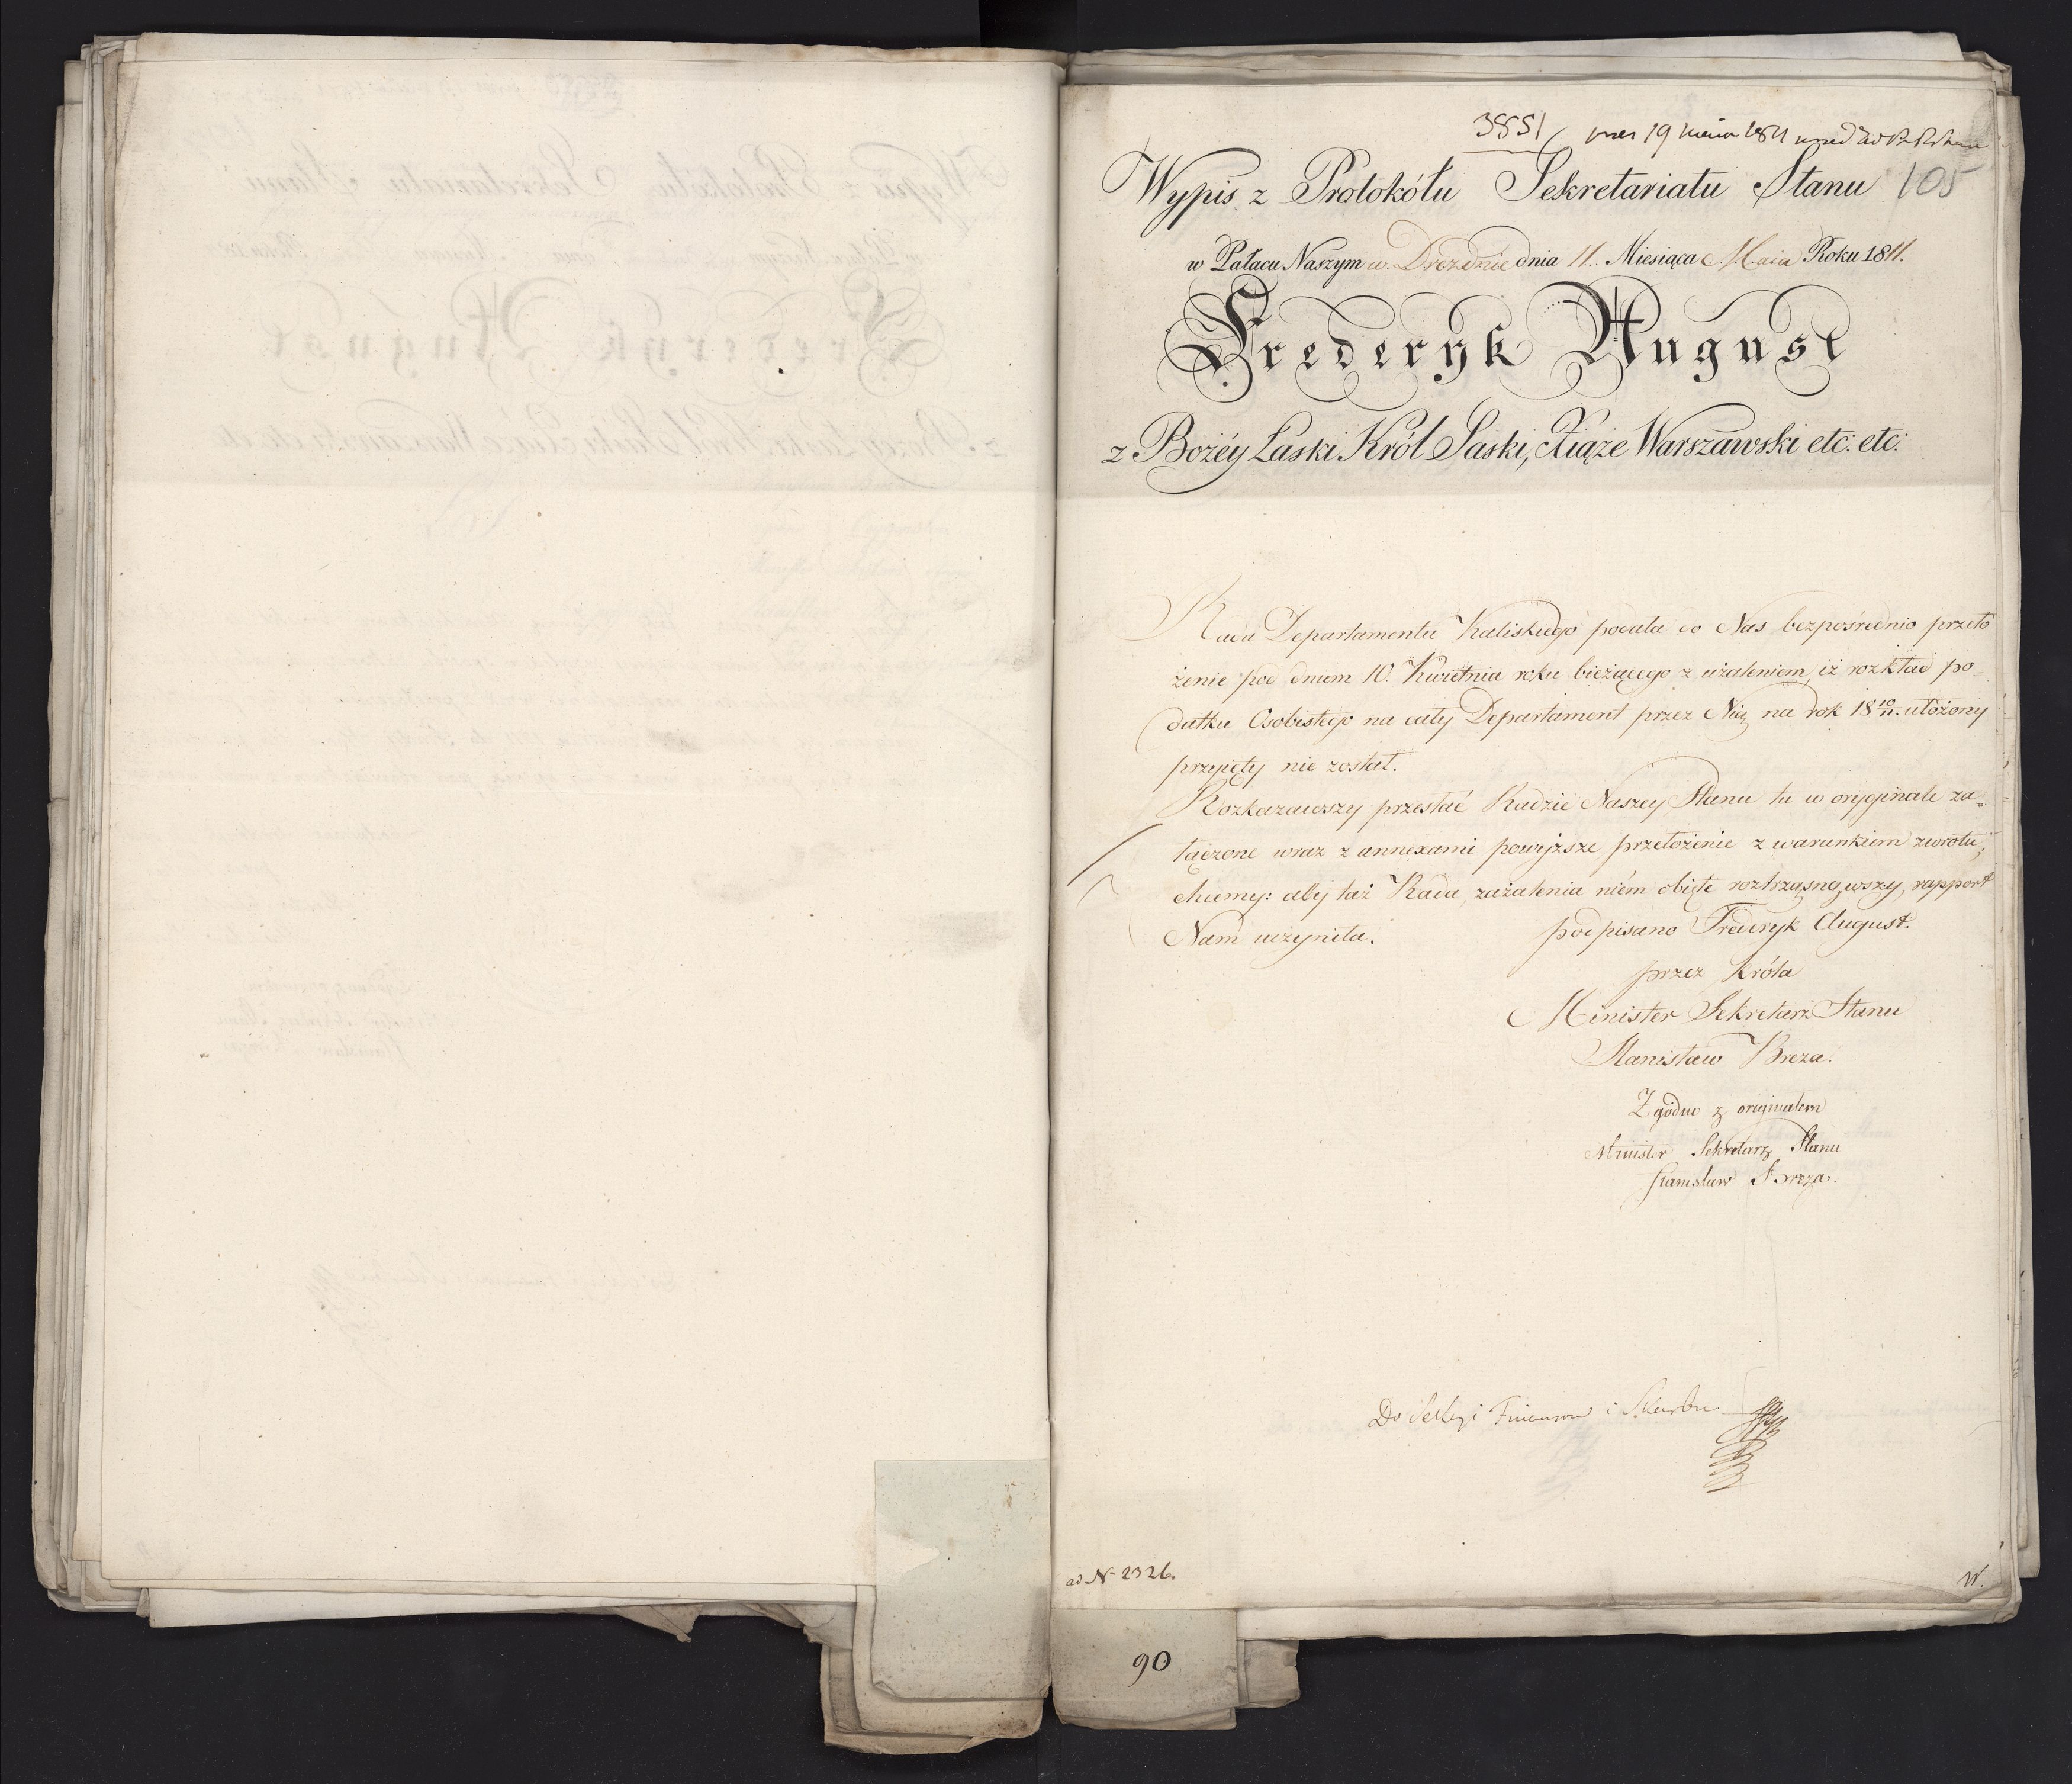 3551
105
Wypis z Protokółu Sekretariatu Stanu
w Pałacu Naszym w Dreźdnie dnia 11. Miesiąca Maia Roku 1811.
Frederyk August
z Bożéy Łaski Król Saski, Xiąże Warszawski etc: etc:
Rada Departamentu Kaliskiego podała do Nas bezpośrednio przeło
żenie pod dniem 10. Kwietnia roku bieżącego z użaleniem, iż rozkład po-
datku Osobistego na cały Departament przez Nią na rok 18 10/11. ułożony
przyięty nie został.
Rozkazawszy przesłać Radzie Naszey Stanu tu w oryginale za-
łączone wraz z annexami powyższe przełożenie z warunkiem zwrotu;
chcemy: aby taż Rada, zażalenia niém obięte roztrząsnąwszy, rapport
Nam uczyniła.
podpisano Frederyk August.
przez Króla
Minister Sekretarz Stanu
Stanisław Breza.
Zgodno z originałem
Minister Sekretarz Stanu
Stanisław Breza.
Do Sekcyi Finansow i Skarbu
ad N 2326.
W.
90